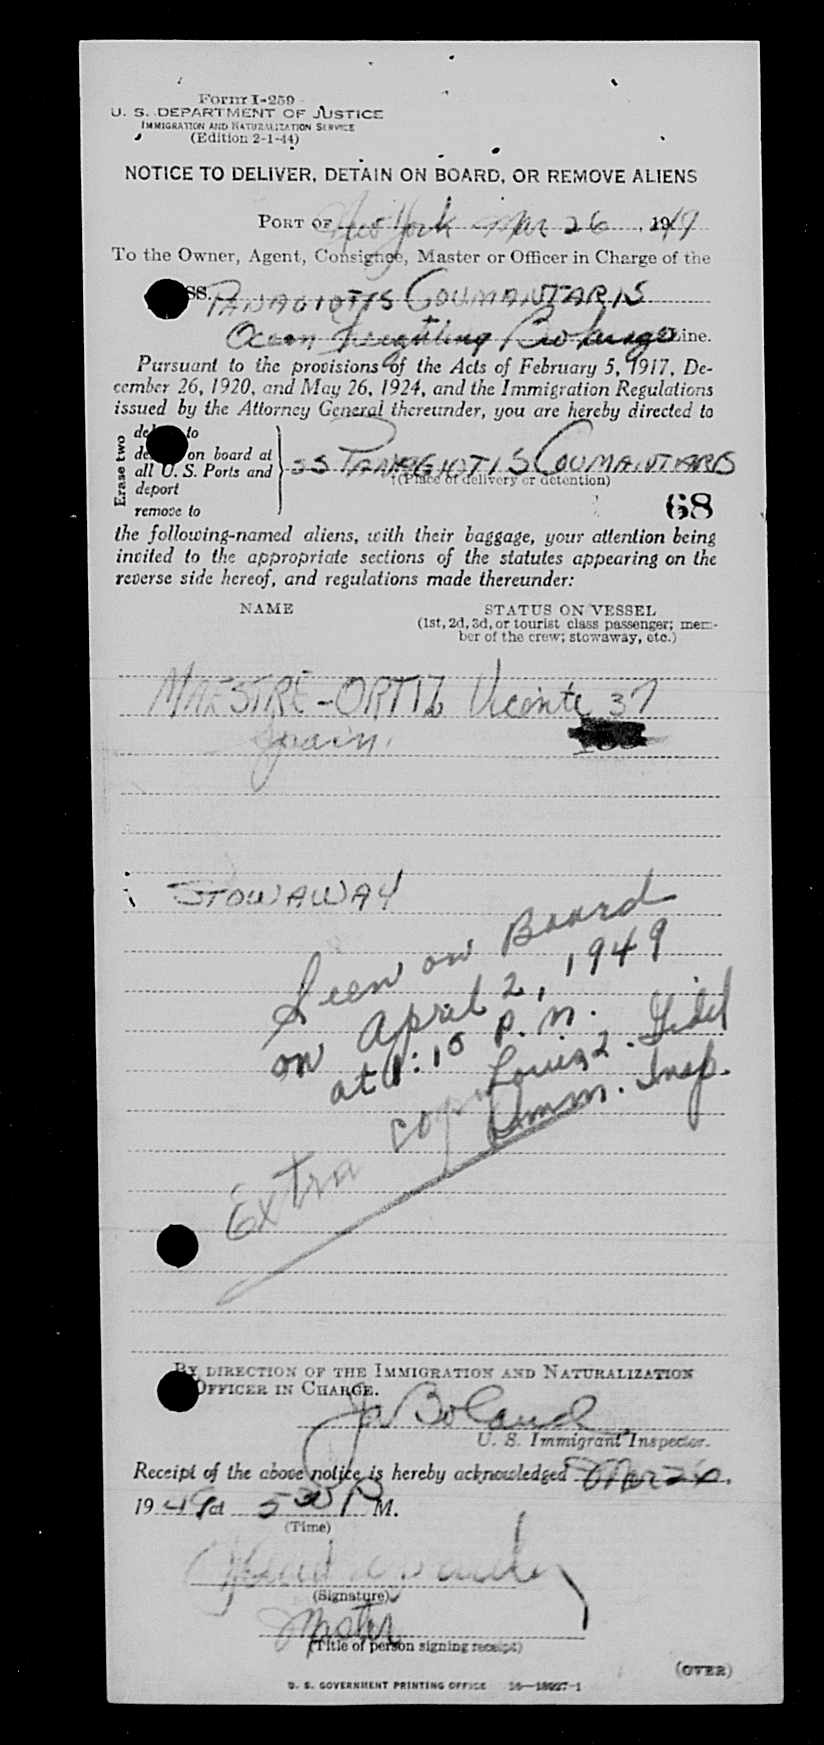 Form I-259
U. S. DEPARTMENT OF JUSTICE
IMMIGRATION AND NATURALIZATION SERVICE
(Edition 2-1-44)
NOTICE TO DELIVER, DETAIN ON BOARD, OR REMOVE ALIENS
PORT OF New York Mar 26, 1949
To the Owner, Agent, Consignee, Master or Officer in Charge of the
SS. PANAGIOTIS COUMANTARIS
Ocean Freighting Brokerage Line.
Pursuant to the provisions of the Acts of February 5, 1917, De-
cember 26, 1920, and May 26, 1924, and the Immigration Regulations
issued by the Attorney General thereunder, you are hereby directed to
Erase two
to
on board at
all U. S. Ports and
deport
remove to
SS PANAGHOTIS COUMANTARIS
(Place of delivery or detention)
68
the following-named aliens, with their baggage, your attention being
invited to the appropriate sections of the statutes appearing on the
reverse side hereof, and regulations made thereunder:
NAME STATUS ON VESSEL
(1st, 2d, 3d, or tourist class passenger; mem-
ber of the crew; stowaway, etc.)
MAESTRE-ORTIZ Vicente 37
Spain.
STOWAWAY
Seen on Board
on April 2, 1949
at 1:10 P.M.
Louis
Imm. Insp.
Extra copy
BY DIRECTION OF THE IMMIGRATION AND NATURALIZATION
OFFICER IN CHARGE.
Boland
U. S. Immigrant Inspector.
Receipt of the above notice is hereby acknowledged Mar 26,
1949 at 5 30 P M.
(Time)
(Signature)
Master
(Title of person signing receipt)
(OVER)
U. S. GOVERNMENT PRINTING OFFICE 16—18927-1